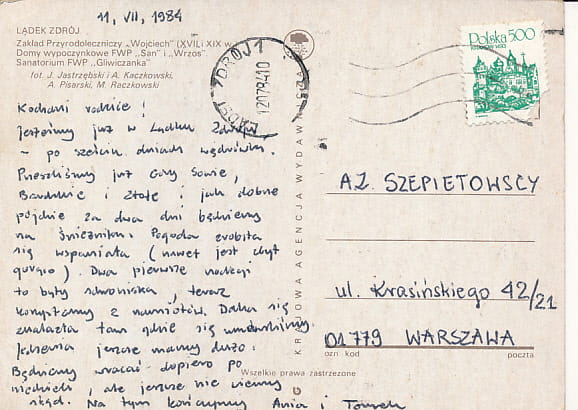 11, VII, 1984
LĄDEK ZDRÓJ
Zakład Przyrodoleczniczy „Wojciech” (XVII, XIX w
Domy wypoczynkowe FWP „San” i „Wrzos”
Sanatorium FWP „Gliwiczanka”
fot. J. Jastrzębski i A. Kaczkowski,
A. Pisarski, M. Raczkowski
Kochani rodzice!
Jesteśmy już w Lądku Zdroju,
- po sześciu dniach wędrówki.
Przeszliśmy już Góry Sowie,
Bardzkie i Złote i jak dobrze
pójdzie za dwa dni będziemy
na Śnieżniku. Pogoda zrobiła
się wspaniała (nawet jest zbyt
gorąco). Dwa pierwsze noclegi
to były schroniska, teraz
korzystamy z namiotów. Dałka się
znalazła tam gdzie się umówiliśmy.
Jedzenia jeszcze mamy dużo.
Będziemy wracać dopiero po
niedzieli, ale jeszcze nie wiemy
skąd. Na tym kończymy Ania i Tomek
KRAJOWA AGENCJA WYDAWN
LĄDEK ZDRÓJ 1
12078410
Polska 500
A.Z. SZEPIETOWSCY
ul. Krasińskiego 42/21
01779 WARSZAWA
ozn kod
poczta
Wszelkie prawa zastrzeżone